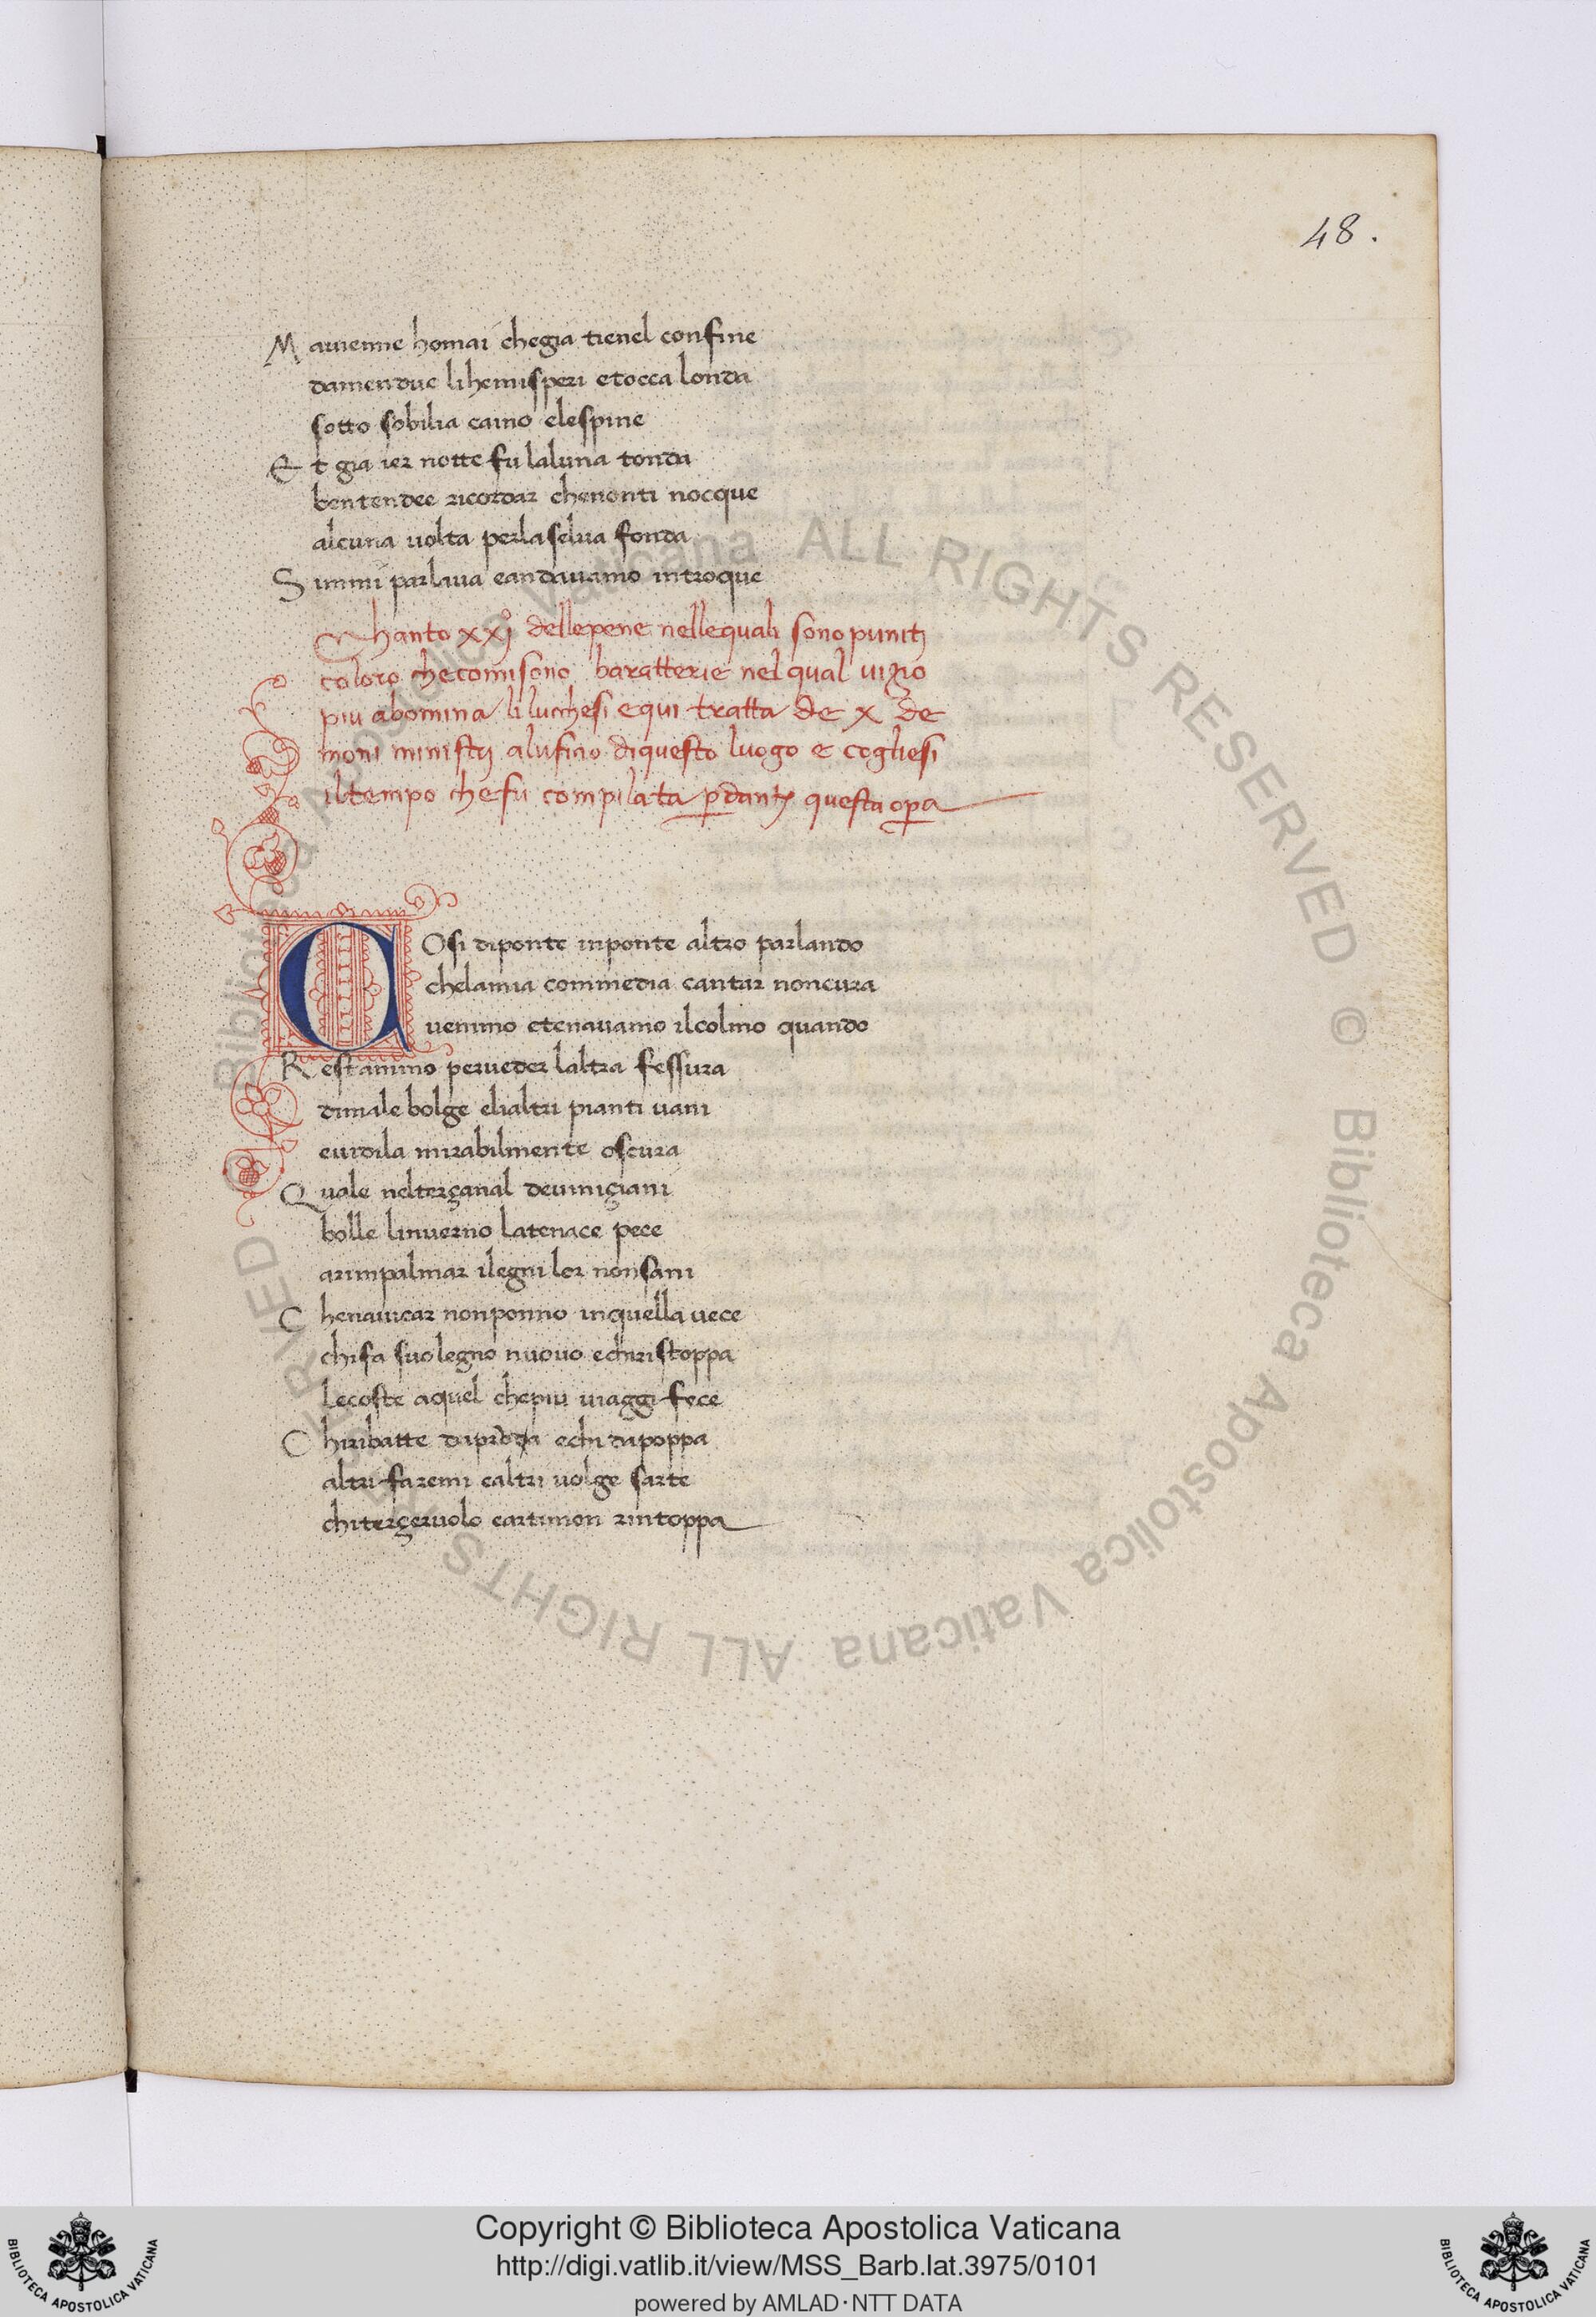 48.
M auienne homai chegia tienel confine
damendue lihemisperi etocca londa
sotto sobilia caino elespine
E t gia ier notte fu laluna tonda
bentendee ricordar chenonti nocque
alcuna uolta perlaselua fonda
S immi parlaua eandauamo introque
Chanto xxj° dellepene nellequali sono puniti
coloro checomisono baratterie nel qual uizio
piu abomina li lucchesi e qui tratta de x de
moni ministrj alufino diquesto luogo e cogliesi
iltempo che fu compilata p dante questa opa
C Osi diponte inponte altro parlando
chelamia commedia cantar noncura
uenimo etenauamo ilcolmo quando
R estammo perueder laltra fessura
dimale bolge elialtri pianti uani
euidila mirabilmente oscura
Q uale nelterçanal deuinigiani
bolle linuerno latenace pece
arimpalmar ilegni lor nonsani
C henauicar nonponno inquella uece
chifa suolegno nuouo echiristoppa
lecoste aquel chepiu uiaggi fece
C hiribatte daproda echi dapoppa
altri faremi ealtri uolge sarte
chiterçeruolo eartimon rintoppa
Biblioteca Apostolica Vaticana ALL RIGHTS RESERVED © Biblioteca Apostolica Vaticana ALL RIGHTS RESERVED ©
Copyright © Biblioteca Apostolica Vaticana
http://digi.vatlib.it/view/MSS_Barb.lat.3975/0101
powered by AMLAD·NTT DATA
BIBLIOTECA APOSTOLICA VATICANA
BIBLIOTECA APOSTOLICA VATICANA